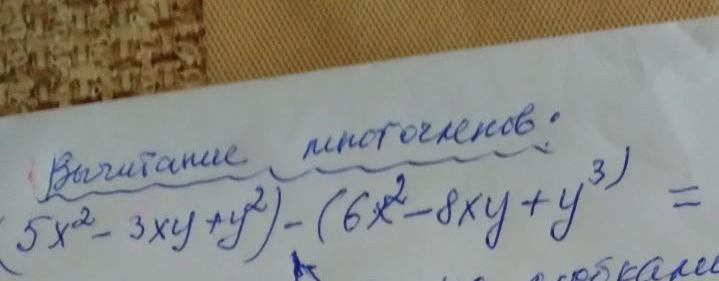 Вычитание многочленов:
(5x² - 3xy + y²) - (6x² - 8xy + y³) =